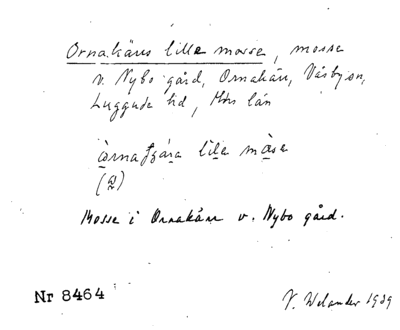 Ornakärs lilla mosse, mosse
v. Nybo gård, Ornakärr, Väsby sn,
Luggude hd, Mhs län
àrna lìla màse
(a)
Mosse i Ornakärr v. Nybo gård.
Nr 8464
V. Welander 1939